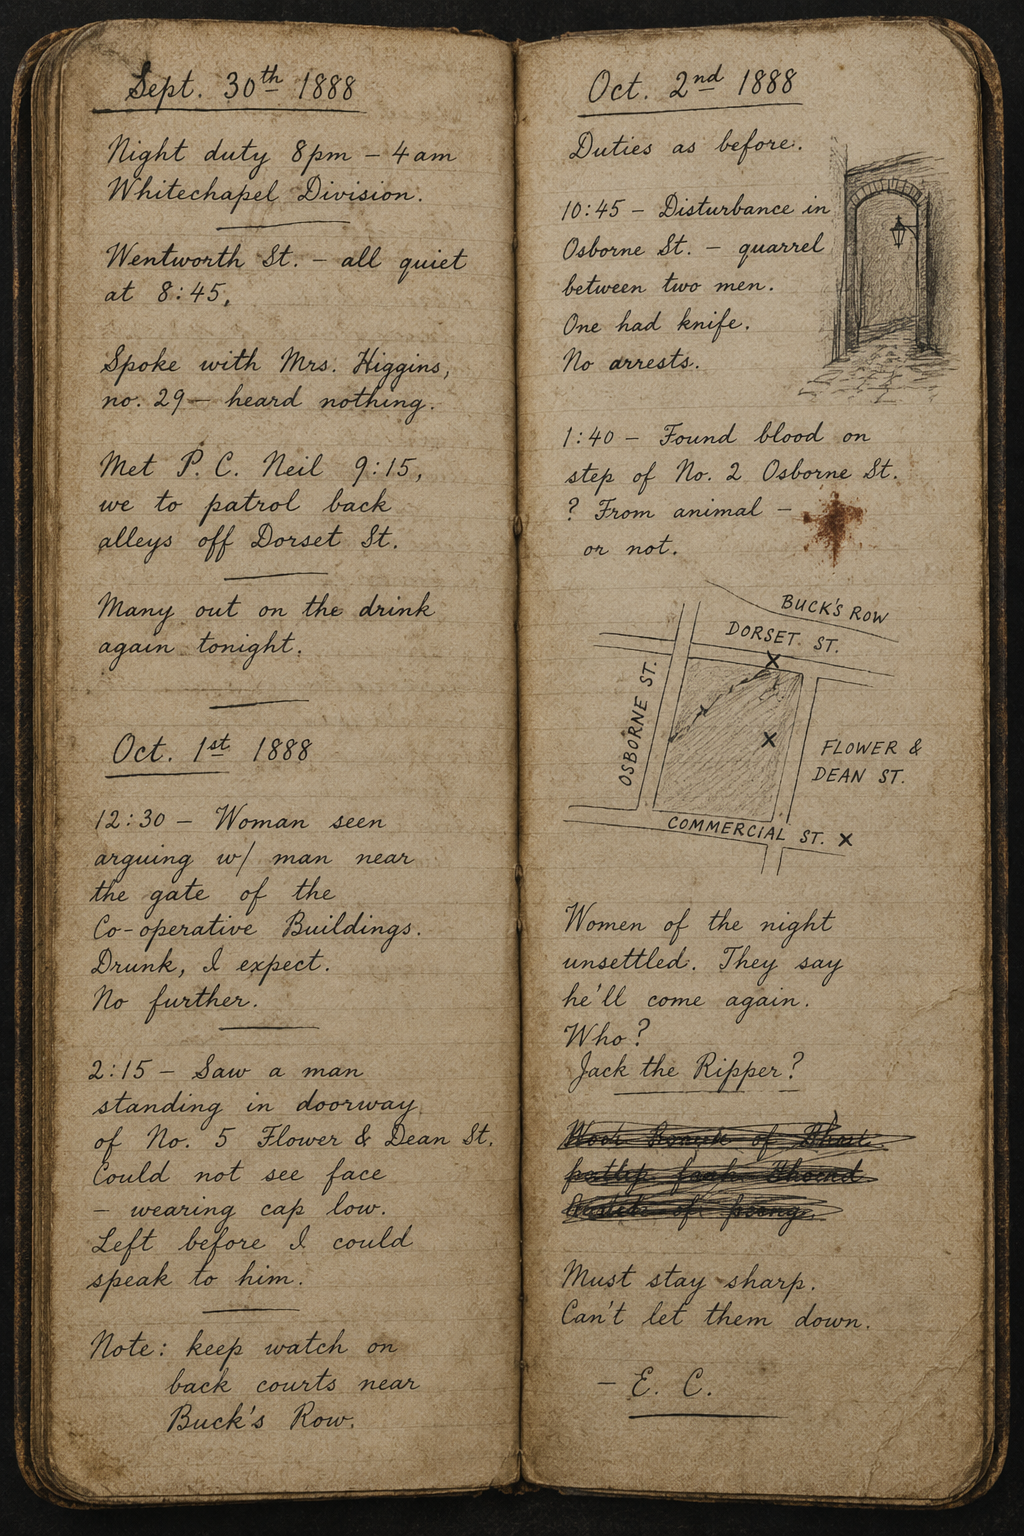 Sept. 30th 1888
Night duty 8pm – 4am
Whitechapel Division.
Wentworth St. – all quiet
at 8:45,
Spoke with Mrs. Higgins,
no. 29 – heard nothing.
Met P. C. Neil 9:15,
we to patrol back
alleys off Dorset St.
Many out on the drink
again tonight.
Oct. 1st 1888
12:30 – Woman seen
arguing w/ man near
the gate of the
Co-operative Buildings.
Drunk, I expect.
No further.
2:15 – Saw a man
standing in doorway
of No. 5 Flower & Dean St.
Could not see face
– wearing cap low.
Left before I could
speak to him.
Note: keep watch on
back courts near
Buck's Row.
Oct. 2nd 1888
Duties as before.
10:45 – Disturbance in
Osborne St. – quarrel
between two men.
One had knife.
No arrests.
1:40 – Found blood on
step of No. 2 Osborne St.
? From animal –
or not.
BUCK'S ROW
DORSET ST.
X
OSBORNE ST.
x
X
FLOWER &
DEAN ST.
COMMERCIAL ST. X
Women of the night
unsettled. They say
he'll come again.
Who?
Jack the Ripper?
of
of
Must stay sharp.
Can't let them down.
– E. C.